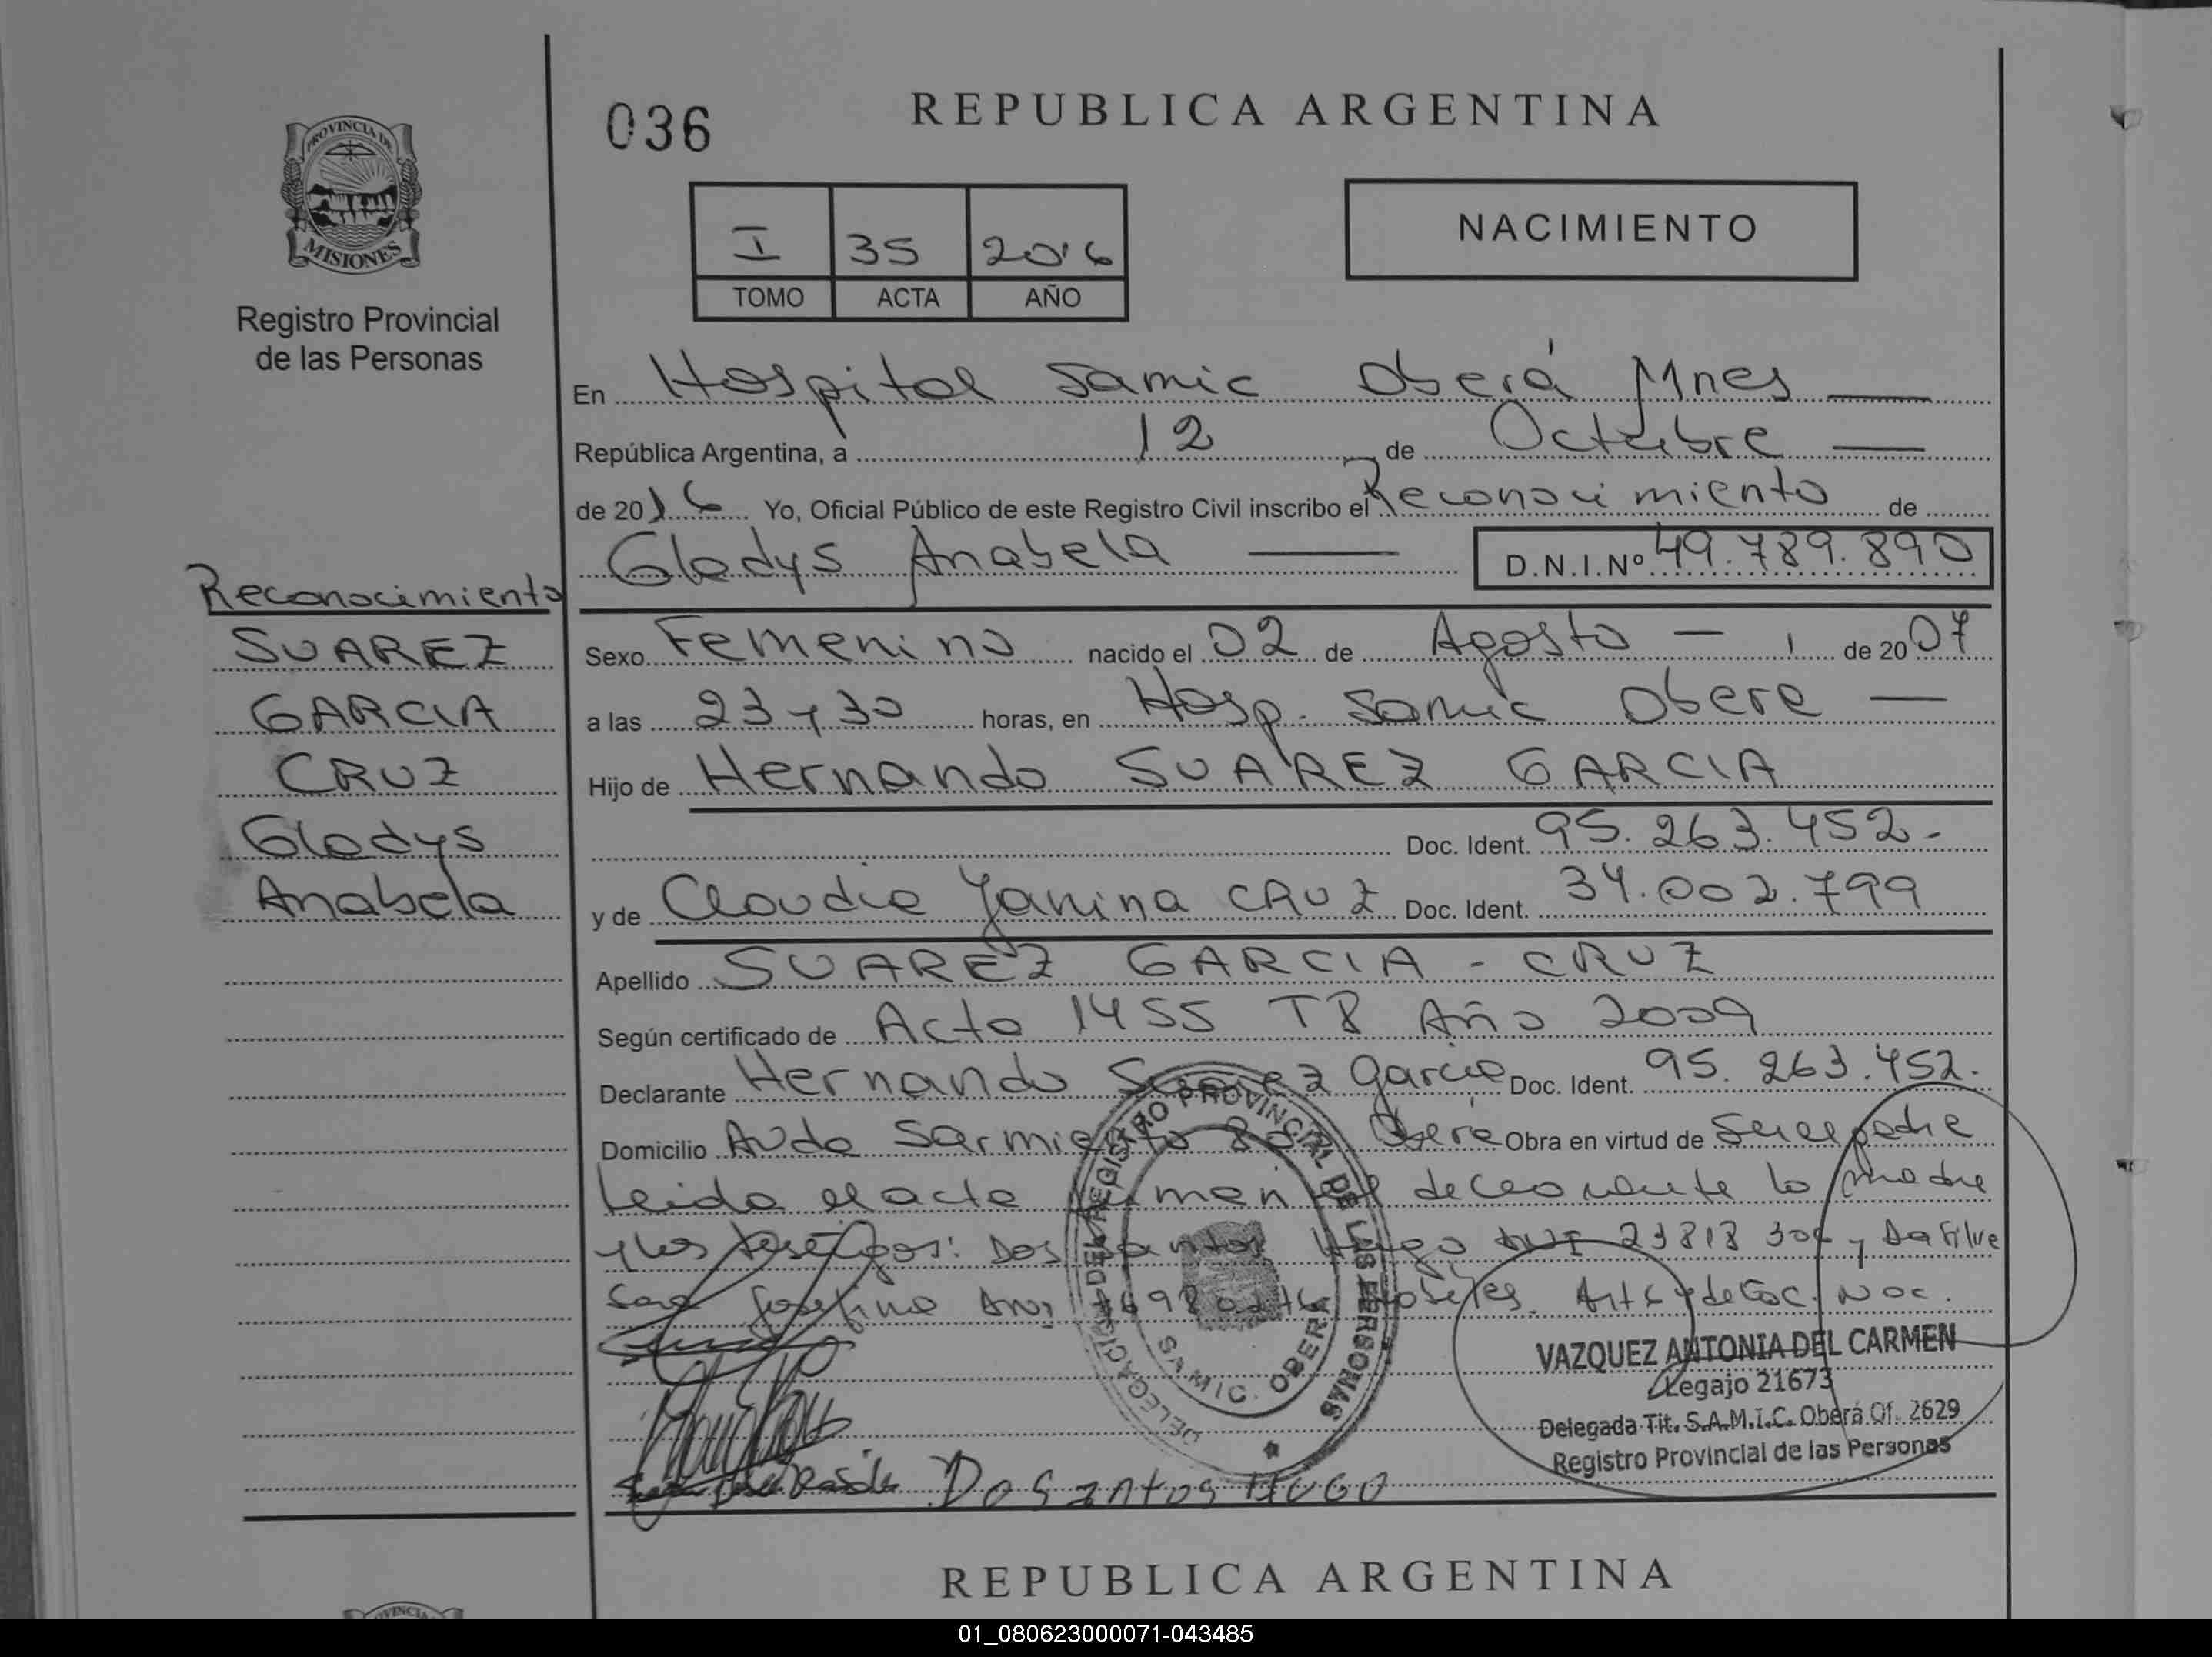 036
REPUBLICA ARGENTINA
PROVINCIA DE
MISIONES
Registro Provincial
de las Personas
I 35 2016
TOMO ACTA AÑO
NACIMIENTO
En Hospital Samic Oberá Mnes
República Argentina, a 12 de Octubre
de 2016 Yo, Oficial Público de este Registro Civil inscribo el Reconocimiento de
Gladys Anabela D.N.I.Nº 49.789.890
Reconocimiento
SUAREZ
GARCIA
CRUZ
Gladys
Anabela
Sexo Femenino nacido el 02 de Agosto de 2007
a las 23 y 30 horas, en Hosp. Samic Obera
Hijo de Hernando SUAREZ GARCIA
Doc. Ident. 95.263.452.
y de Claudia Yanina CRUZ Doc. Ident. 34.002.799
Apellido SUAREZ GARCIA - CRUZ
Según certificado de Acta 1455 T8 Año 2009
Declarante Hernando Suarez Garcia Doc. Ident. 95.263.452.
Domicilio Avda Sarmiento Oberá Obra en virtud de ser el padre
Leida el acta firman el declarante la madre
y los testigos: Dos Santos Hugo DNI y Da Silva
Sara Josefina
DELEGACION DEL REGISTRO PROVINCIAL DE LAS PERSONAS
SAMIC. OBERA
VAZQUEZ ANTONIA DEL CARMEN
Legajo 21673
Delegada Tit. S.A.M.I.C. Oberá Of. 2629
Registro Provincial de las Personas
Dos Santos HUGO
REPUBLICA ARGENTINA
01_080623000071-043485